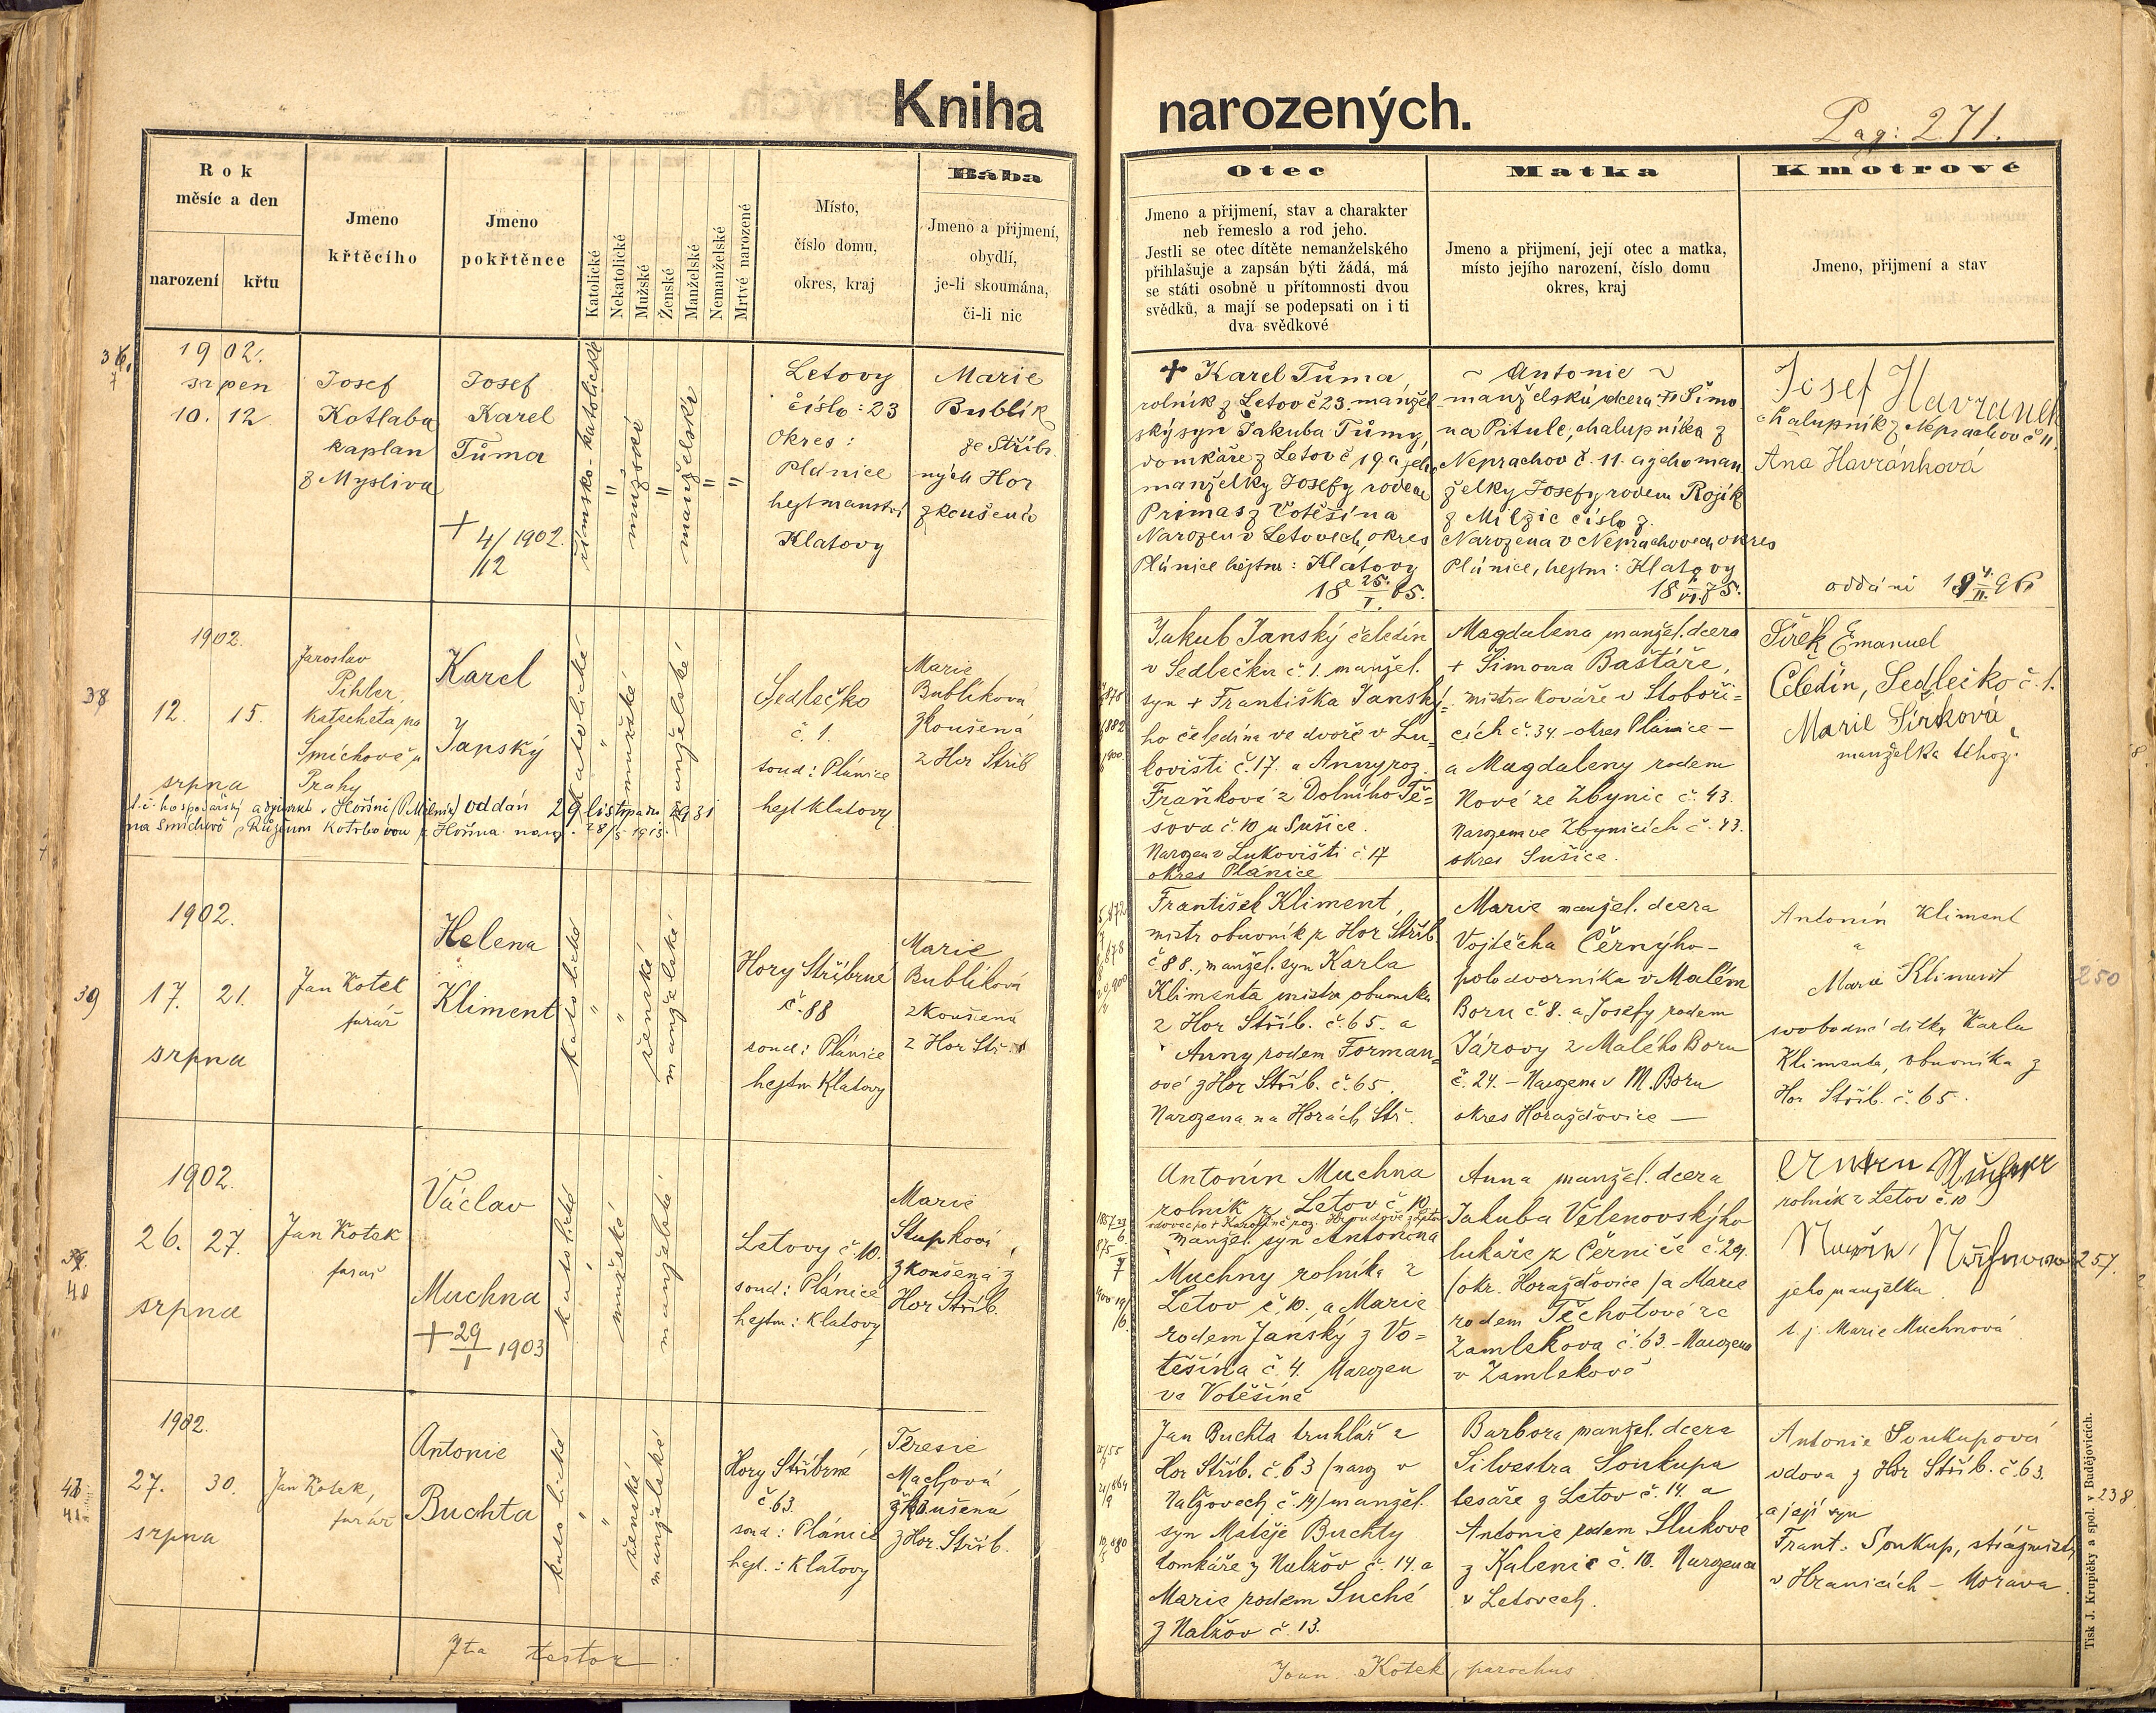 Kniha narozených.
Pag: 271.
Rok
měsíc a den
narození
křtu
Jmeno
křtěcího
Jmeno
pokřtěnce
Katolické
Nekatolické
Mužské
Ženské
Manželské
Nemanželské
Mrtvě narozené
Místo,
číslo domu,
okres, kraj
Bába
Jmeno a přijmení,
obydlí,
je-li skoumána,
či-li nic
Otec
Jmeno a přijmení, stav a charakter
neb řemeslo a rod jeho.
Jestli se otec dítěte nemanželského
přihlašuje a zapsán býti žádá, má
se státi osobně u přítomnosti dvou
svědků, a mají se podepsati on i ti
dva svědkové
Matka
Jmeno a přijmení, její otec a matka,
místo jejího narození, číslo domu
okres, kraj
Kmotrové
Jmeno, přijmení a stav
1902.
srpen
10. 12
Josef
Kotlaba
kaplan
z Mysliva
Josef
Karel
Tůma
+ 4/12 1902.
římsko-katolické
"
mužské
"
manželské
"
"
Letovy
číslo: 23
Okres:
Plánice
hejtmanství
Klatovy
Marie
Bublík
ze Stříbr
ných Hor
zkoušená
+ Karel Tůma,
rolník z Letov č 23. manžel
ský syn Jakuba Tůmy,
domkáře z Letov č 19 a jeho
manželky Josefy rodem
Primas z Votěšína
Narozen v Letovech, okres
Plánice hejtm: Klatovy
18 25./I. 65.
~ Antonie ~
manželská dcera + Šimo
na Pitule, chalupníka z
Neprachov č. 11. a jeho man
želky Josefy rodem Rojík
z Milžic číslo 7.
Narozena v Neprachovech okres
Plánice, hejtm: Klatovy
Josef Havranek
chalupník z Neprachov č 11
Ana Havránková
oddáni
38
1902.
12. 15.
srpna
Jaroslav
Pihler,
katecheta na
Smíchově u
Prahy
Karel
Janský
katolické
"
mužské
manželské
Sedlečko
č. 1.
soud: Plánice
hejt Klatovy
Marie
Bublíková
zkoušená
z Hor Stříb
t. č. hospodářský adjunkt v Hoříně (P. Mělník) oddán 29 listopadu 1931
na Smíchově s Růženou Kotrbovou z Hořína naroz. 28/5 1913.
Jakub Janský čeledín
v Sedlečku č. 1. manžel.
syn + Františka Janské-
ho čeledína ve dvoře v Lu-
kovišti č. 17. a Anny roz.
Fraňkové z Dolního Tě-
šova č. 10 u Sušice.
Narozen v Lukovišti č 17
okres Plánice
Magdalena manžel. dcera
+ Šimona Baštáře,
mistra kováře v Stoboři-
cích č. 34 - okres Plánice -
a Magdaleny rodem
Nové ze Zbynic č. 43.
Narozena ve Zbynicích č. 43.
okres Sušice.
Šírek Emanuel
Čeledín, Sedlečko č. 1.
Marie Šírková
manželka téhož.
39
1902.
17. 21.
srpna
Jan Kotek
farář
Helena
Kliment
katolické
"
"
ženské
manželské
Hory Stříbrné
č. 88
soud: Plánice
hejtm Klatovy
Marie
Bublíková
zkoušená
z Hor Stř.
František Kliment,
mistr obuvník z Hor Stříb.
č 88., manžel. syn Karla
Klimenta mistra obuvníka
z Hor Stříb. č. 65. a
Anny rodem Forman-
ové z Hor Stříb. č. 65.
Narozena na Horách Stř.
Marie manžel. dcera
Vojtěcha Černýho -
polodvorníka v Malém
Boru č. 8. a Josefy rodem
Járovy z Malého Boru
č. 24. - Narozena v M. Boru
okres Horažďovice -
Antonín Kliment
a
Marie Kliment
svobodné dítky Karla
Klimenta, obuvníka z
Hor Stříb. č. 65.
250
40
1902.
26. 27.
srpna
Jan Kotek
farář
Václav
Muchna
+ 29/I 1903
katolické
"
mužské
manželské
Letovy č. 10.
soud: Plánice
hejtm: Klatovy
Marie
Stupková,
zkoušená z
Hor Stříb.
Antonín Muchna
rolník z Letov č 10
manžel. syn Antonína
Muchny rolníka z
Letov č. 10. a Marie
rodem Janský z Vo-
těšína č. 4. Narozen
ve Votěšíně
Anna manžel. dcera
Jakuba Velenovskýho
lukaře z Černíče č. 29.
/okr. Horažďovice /a Marie
rodem Těchotové ze
Zamlekova č. 63. - Narozena
v Zamlekově
rolník z Letov č. 10
jeho manželka
t. j. Marie Muchnová
257.
41
1902.
27. 30.
srpna
Jan Kotek,
farář
Antonie
Buchta
katolické
"
"
ženské
manželské
Hory Stříbrné
č. 63.
soud: Plánice
hejt.: Klatovy
Teresie
Machová
zkoušená
z Hor. Stříb.
Jan Buchta truhlář z
Hor Stříb. č. 63 /naroz v
Nalžovech č. 14/ manžel.
syn Matěje Buchty
domkáře z Nalžov č. 14. a
Marie rodem Suché
z Nalžov č. 13.
Barbora manžel. dcera
Silvestra Soukupa
tesaře z Letov č. 14. a
Antonie rodem Slukové
z Kalenic č. 10. Narozena
v Letovech.
Antonie Soukupová
vdova z Hor Stříb. č. 63.
a její syn
Frant. Soukup, strážmistr
v Hranicích - Morava.
238.
Ita testor:
Joan. Kotek, parochus
Tisk J. Krupičky a spol. v Budějovicích.